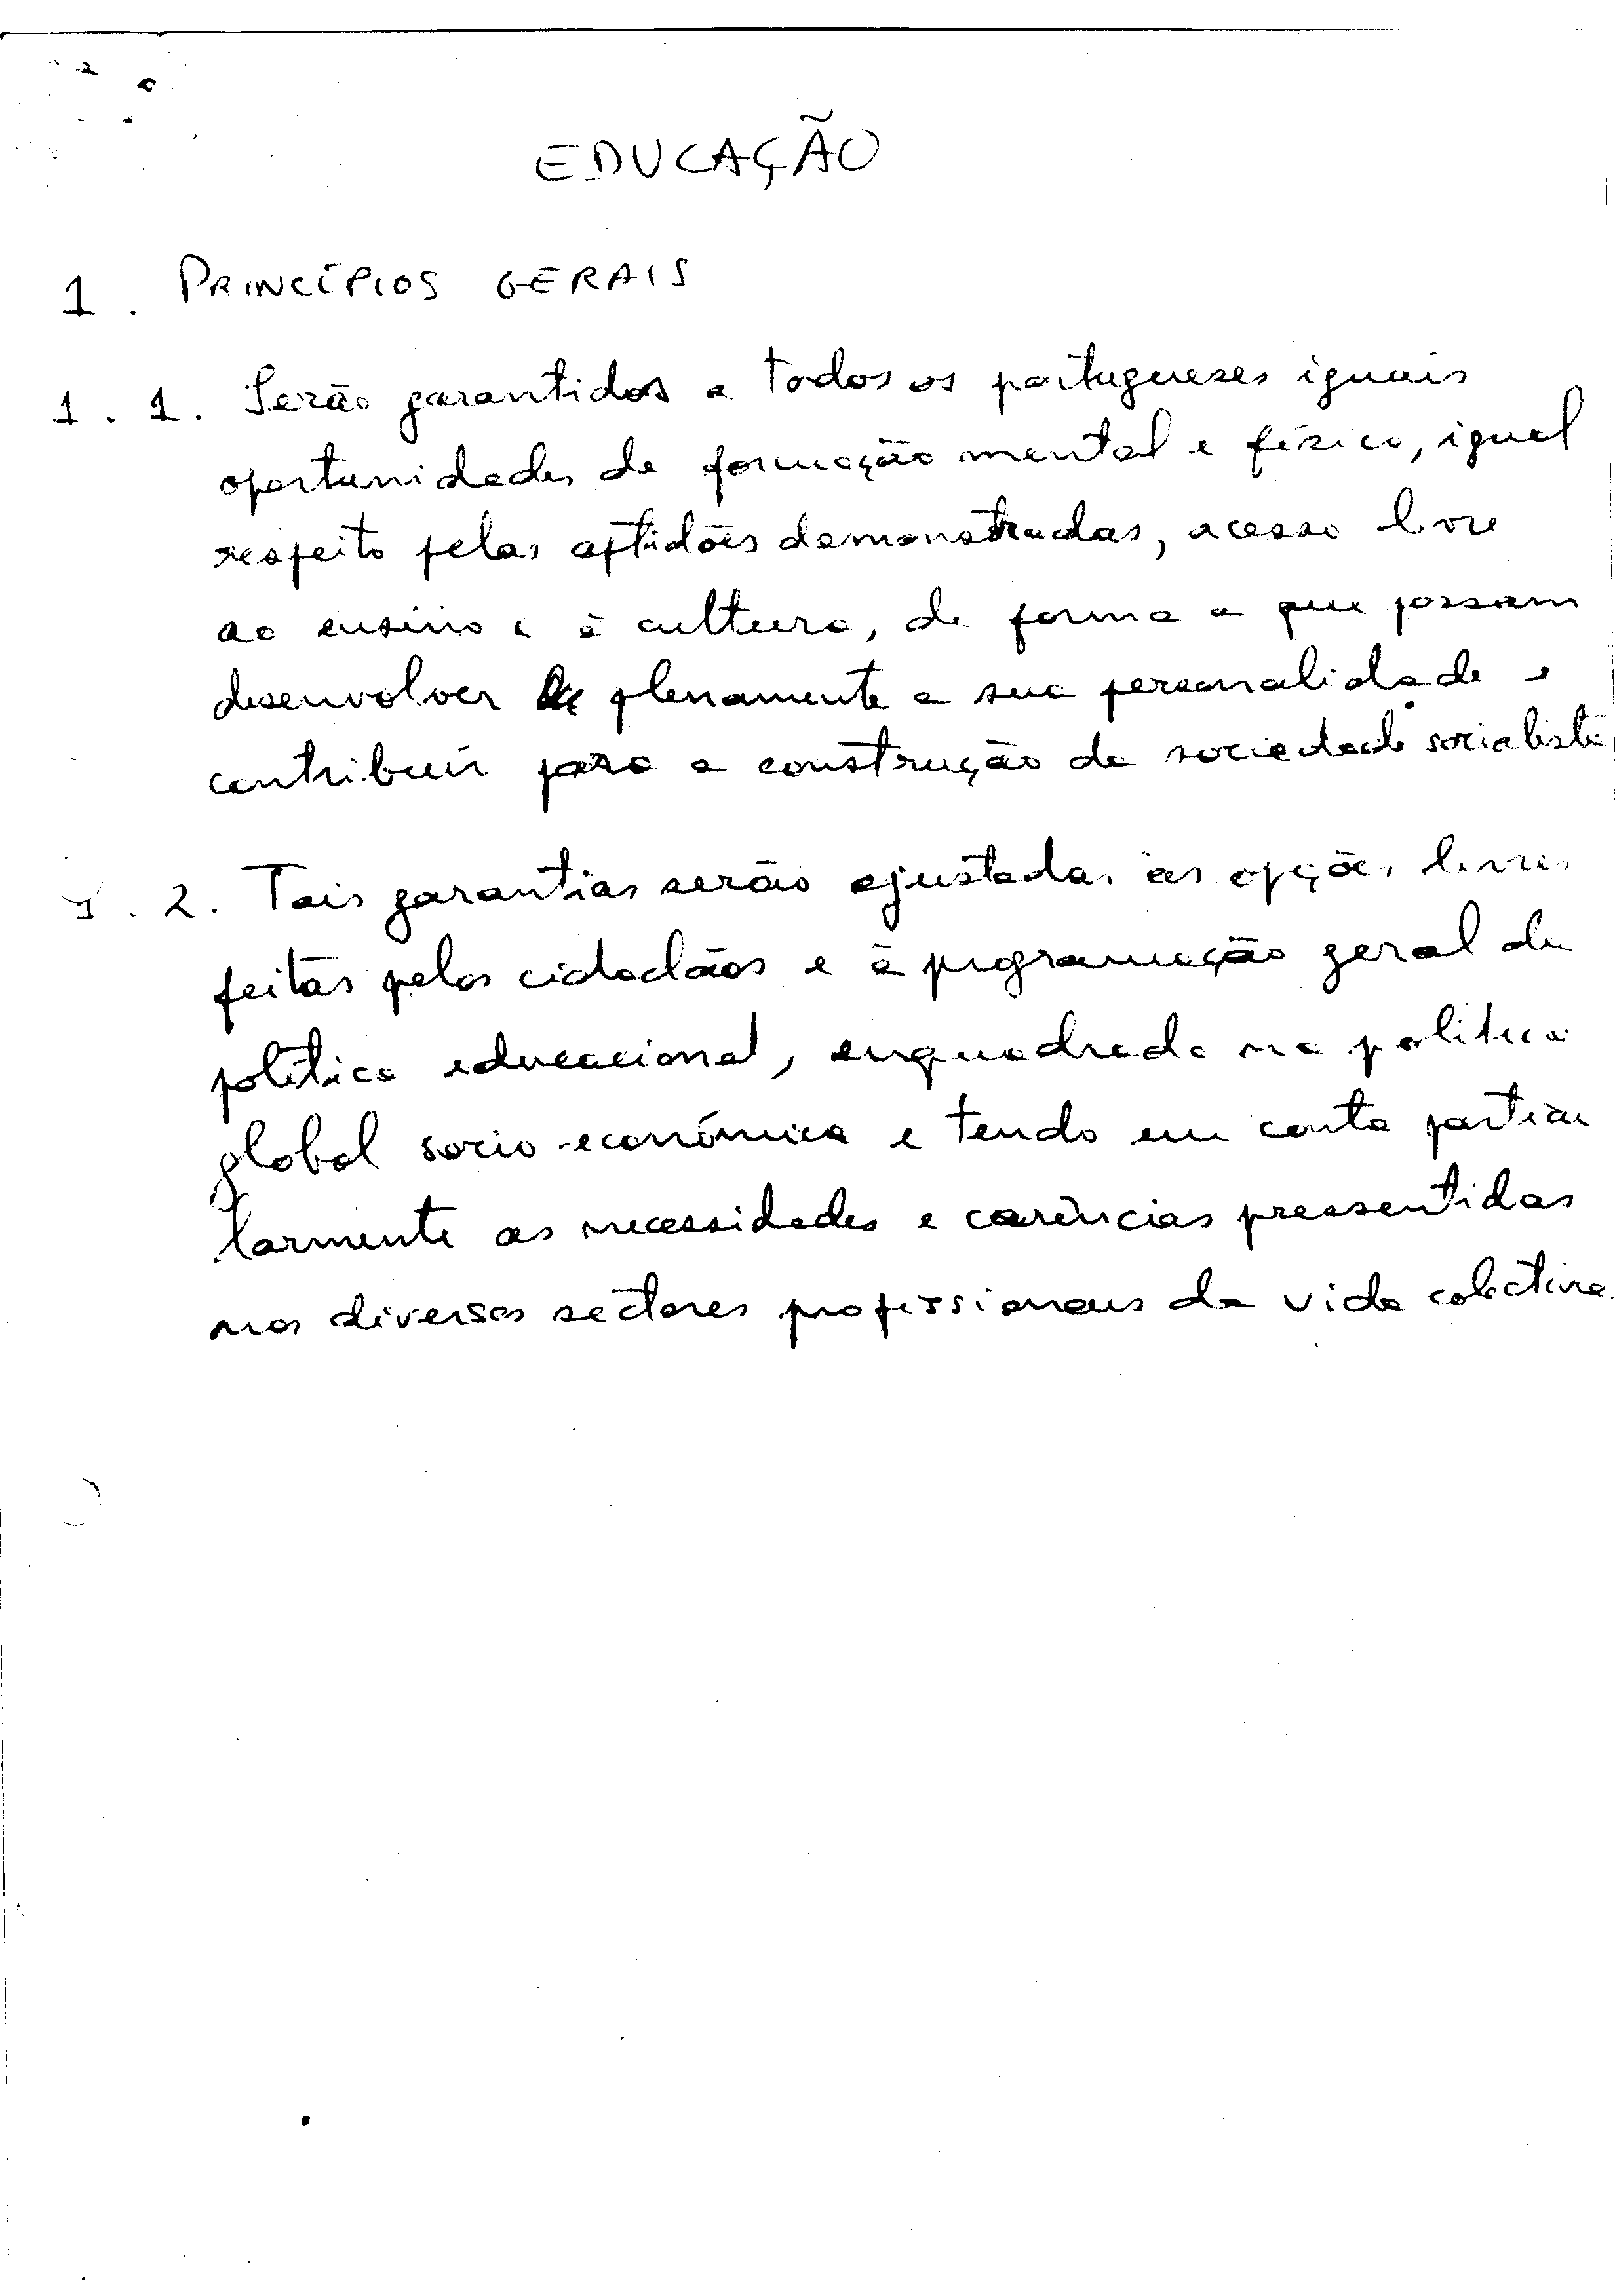 EDUCAÇÃO
1. PRINCÍPIOS GERAIS
1.1. Serão garantidos a todos os portugueses iguais
oportunidades de formação mental e física, igual
respeito pelas aptidões demonstradas, acesso livre
ao ensino e à cultura, de forma a que possam
desenvolver plenamente a sua personalidade e
contribuir para a construção da sociedade socialista
1.2. Tais garantias serão ajustadas às opções livres
feitas pelos cidadãos e à programação geral da
política educacional, enquadrada na política
global socio-económica e tendo em conta particu
larmente as necessidades e carências pressentidas
nos diversos sectores profissionais da vida colectiva.